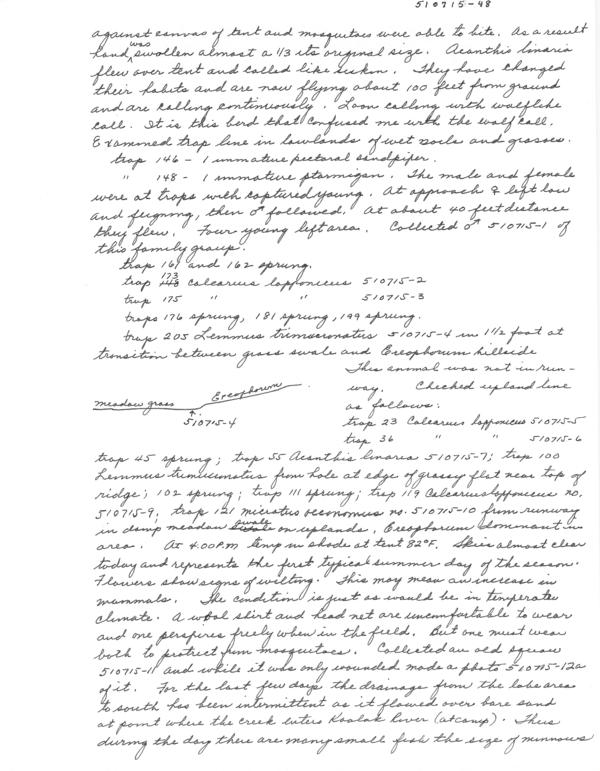 510715-48
against canvas of tent and mosquitoes were able to bite. As a result
hand was swollen almost a 1/3 its original size. Acanthis linaria
flew over tent and called like siskin. They have changed
their habits and are now flying about 100 feet from ground
and are calling continuously. Loon calling with wolflike
call. It is this bird that confused me with the wolf call.
Examined trap line in lowlands of wet soils and grasses.
trap 146 - 1 immature pectoral sandpiper.
" 148 - 1 immature ptarmigan. The male and female
were at traps with captured young. At approach ♀ left low
and feigning, then ♂ followed. At about 40 feet distance
they flew. Four young left area. Collected ♂ 510715-1 of
this family group.
trap 161 and 162 sprung.
trap 173 Calcarius lapponicus 510715-2
trap 175 " " 510715-3
traps 176 sprung, 181 sprung, 199 sprung.
trap 205 Lemmus trimucronatus 510715-4 in 1 1/2 foot at
transition between grass swale and Ereophorum hillside
This animal was not in run-
way. Checked upland line
as follows:
meadow grass Ereophorum
510715-4
trap 23 Calcarius lapponicus 510715-5
trap 36 " " 510715-6
trap 45 sprung; trap 55 Acanthis linaria 510715-7; trap 100
Lemmus trimucronatus from hole at edge of grassy flat near top of
ridge; 102 sprung; trap 111 sprung; trap 119 Calcarius lapponicus no.
510715-9, trap 121 microtus oeconomus no. 510715-10 from runway
in damp meadow swale on uplands. Ereophorum dominant in
area. At 4:00 P.M temp in shade at tent 82°F. Skies almost clear
today and represents the first typical summer day of the season.
Flowers show signs of wilting. This may mean an increase in
mammals. The condition is just as would be in temperate
climate. A wool shirt and head net are uncomfortable to wear
and one perspires freely when in the field. But one must wear
both to protect from mosquitoes. Collected an old squaw
510715-11 and while it was only wounded made a photo 510715-12a
of it. For the last few days the drainage from the lake area
to south has been intermittent as it flowed over bare sand
at point where the creek enters Kaolak River (at camp). Thus
during the day there are many small fish the size of minnows